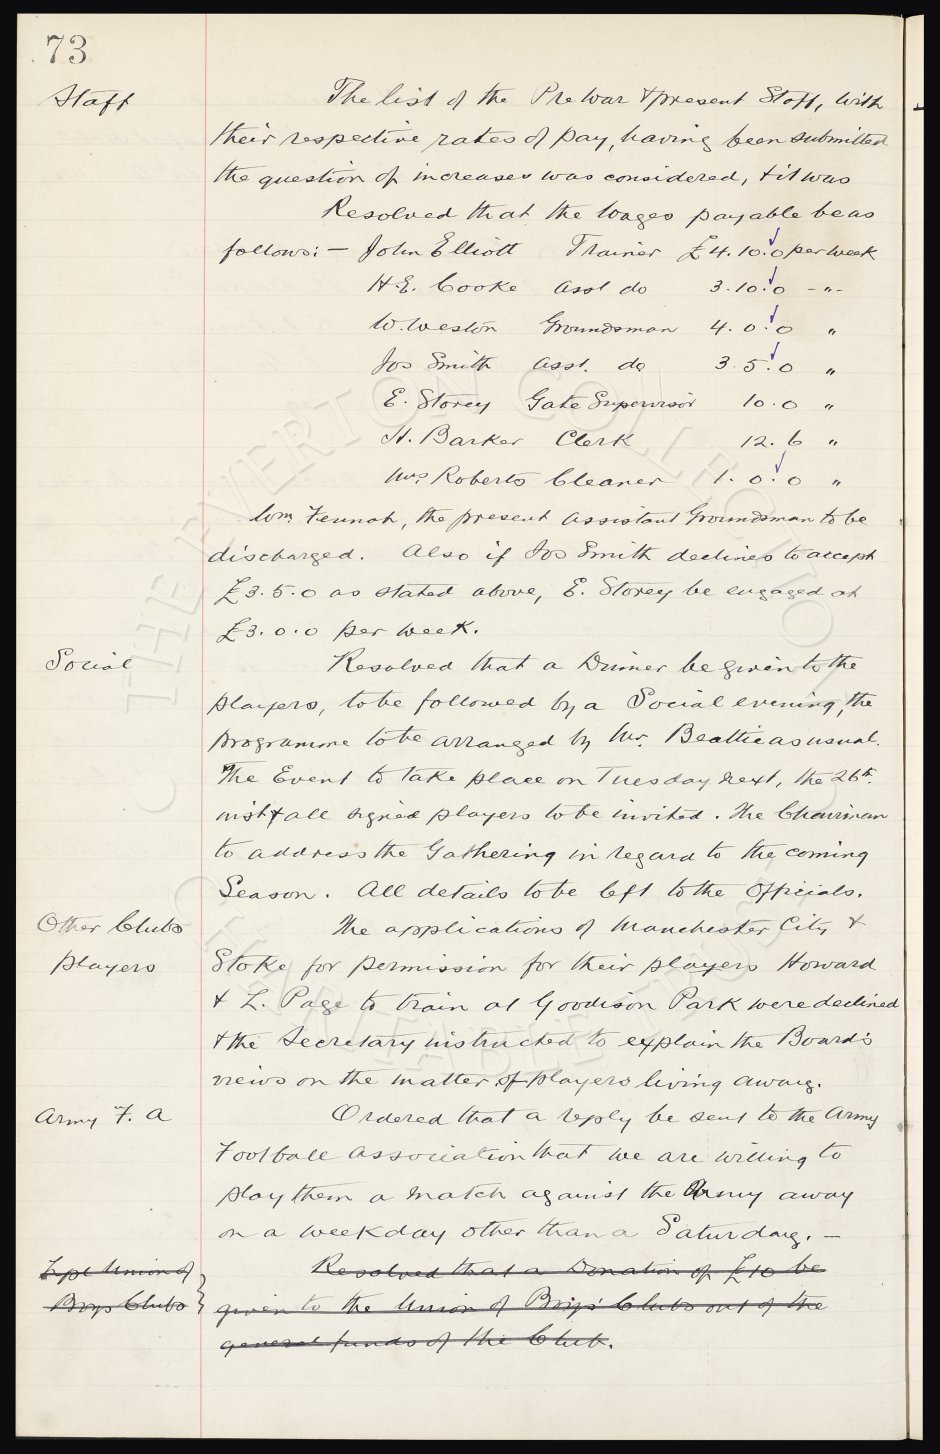 73
Staff
The list of the Pre War & present Staff, with
their respective rates of pay, having been submitted
the question of increases was considered, & it was
Resolved that the wages payable be as
follows: — John Elliott Trainer £4.10.0 per week
H.E. Cooke Asst do 3.10.0 -"-
W. Weston Groundsman 4.0.0 "
Jos Smith Asst. do 3.5.0 "
E. Storey Gate Supervisor 10.0 "
H. Barker Clerk 12.6 "
Mrs. Roberts Cleaner 1.0.0 "
Wm. Fennah, the present Assistant Groundsman to be
discharged. Also if Jos Smith declines to accept
£3.5.0 as stated above, E. Storey be engaged at
£3.0.0 per week.
Social
Resolved that a Dinner be given to the
players, to be followed by a Social evening, the
programme to be arranged by Mr. Beattie as usual.
The Event to take place on Tuesday next, the 26th.
inst & all signed players to be invited. The Chairman
to address the Gathering in regard to the coming
Season. All details to be left to the Officials.
Other Clubs
players
The applications of Manchester City &
Stoke for permission for their players Howard
& L. Page to train at Goodison Park were declined
& the Secretary instructed to explain the Board's
views on the matter of players living away.
Army F. A
Ordered that a reply be sent to the Army
Football Association that we are willing to
play them a match against the Army away
on a weekday other than a Saturday. —
Lpl Union of
Boys Clubs
Resolved that a Donation of £10 be
given to the Union of Boys' Clubs out of the
general funds of the Club.
© THE EVERTON COLLECTION
CHARITABLE TRUST